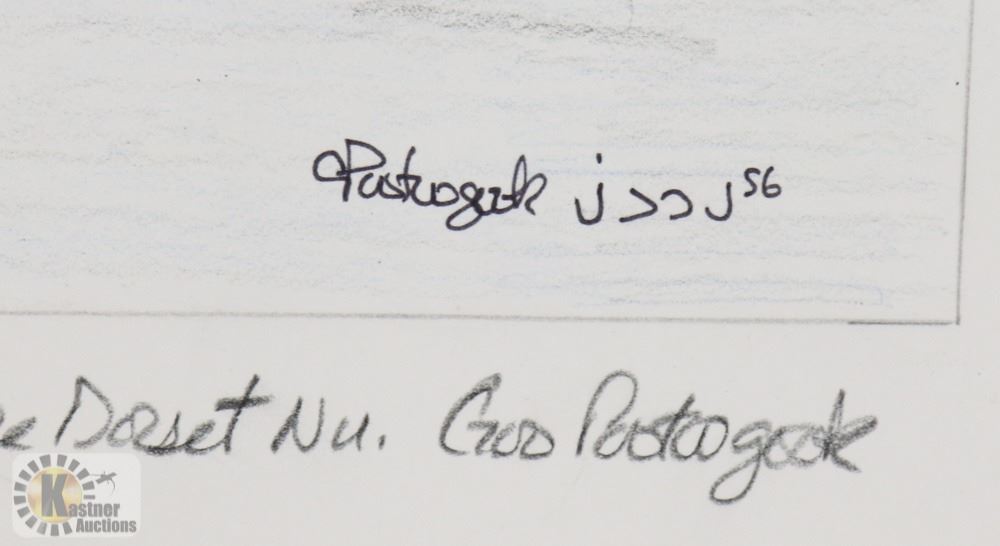 Pootoogook ᒎ ᐳᑐᒍᖅ
Dorset Nu. Goo Pootoogook
Kastner
Auctions